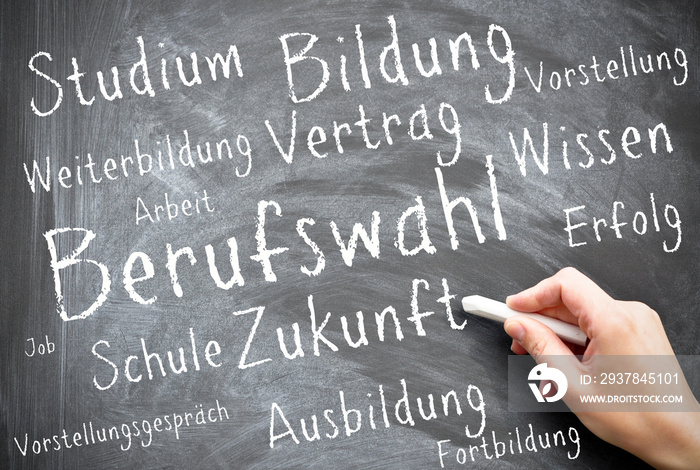 Studium
Bildung
Vorstellung
Weiterbildung
Vertrag
Wissen
Arbeit
Berufswahl
Erfolg
Zukunft
Job
Schule
Ausbildung
Vorstellungsgespräch
Fortbildung
ID:2937845101
WWW.DROITSTOCK.COM